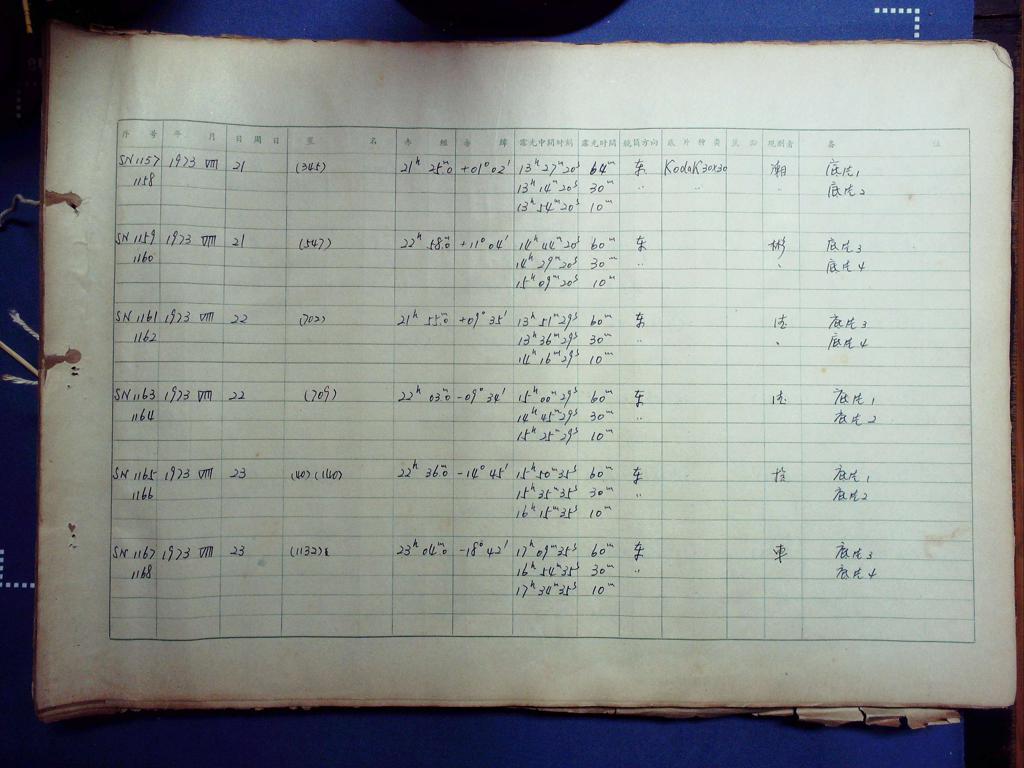 序号 年 月 日期 日 星 名 赤 经 赤 纬 露光中间时刻 露光时间 镜筒方向 底片种类 观测者 备 注
SN1157 1973 VIII 21 (345) 21ʰ 25ᵐ.0 +01° 02′ 13ʰ 27ᵐ 20ˢ 64ᵐ 东 Kodak 30x30 底片1
1158 13ʰ 14ᵐ 20ˢ 30ᵐ 〃 〃 底片2
13ʰ 54ᵐ 20ˢ 10ᵐ
SN1159 1973 VIII 21 (547) 22ʰ 58ᵐ.0 +11° 04′ 14ʰ 44ᵐ 20ˢ 60ᵐ 东 彬 底片3
1160 14ʰ 29ᵐ 20ˢ 30ᵐ 〃 底片4
15ʰ 09ᵐ 20ˢ 10ᵐ
SN1161 1973 VIII 22 (702) 21ʰ 55ᵐ.0 +09° 35′ 13ʰ 51ᵐ 29ˢ 60ᵐ 东 底片3
1162 13ʰ 36ᵐ 29ˢ 30ᵐ 〃 底片4
14ʰ 16ᵐ 29ˢ 10ᵐ
SN1163 1973 VIII 22 (709) 22ʰ 03ᵐ.0 -09° 34′ 15ʰ 00ᵐ 29ˢ 60ᵐ 东 底片1
1164 14ʰ 45ᵐ 29ˢ 30ᵐ 〃 底片2
15ʰ 25ᵐ 29ˢ 10ᵐ
SN1165 1973 VIII 23 (40) (140) 22ʰ 36ᵐ.0 -14° 45′ 15ʰ 50ᵐ 35ˢ 60ᵐ 东 底片1
1166 15ʰ 35ᵐ 35ˢ 30ᵐ 〃 底片2
16ʰ 15ᵐ 35ˢ 10ᵐ
SN1167 1973 VIII 23 (1132) 23ʰ 04ᵐ.0 -18° 42′ 17ʰ 09ᵐ 35ˢ 60ᵐ 东 底片3
1168 16ʰ 54ᵐ 35ˢ 30ᵐ 〃 底片4
17ʰ 34ᵐ 35ˢ 10ᵐ